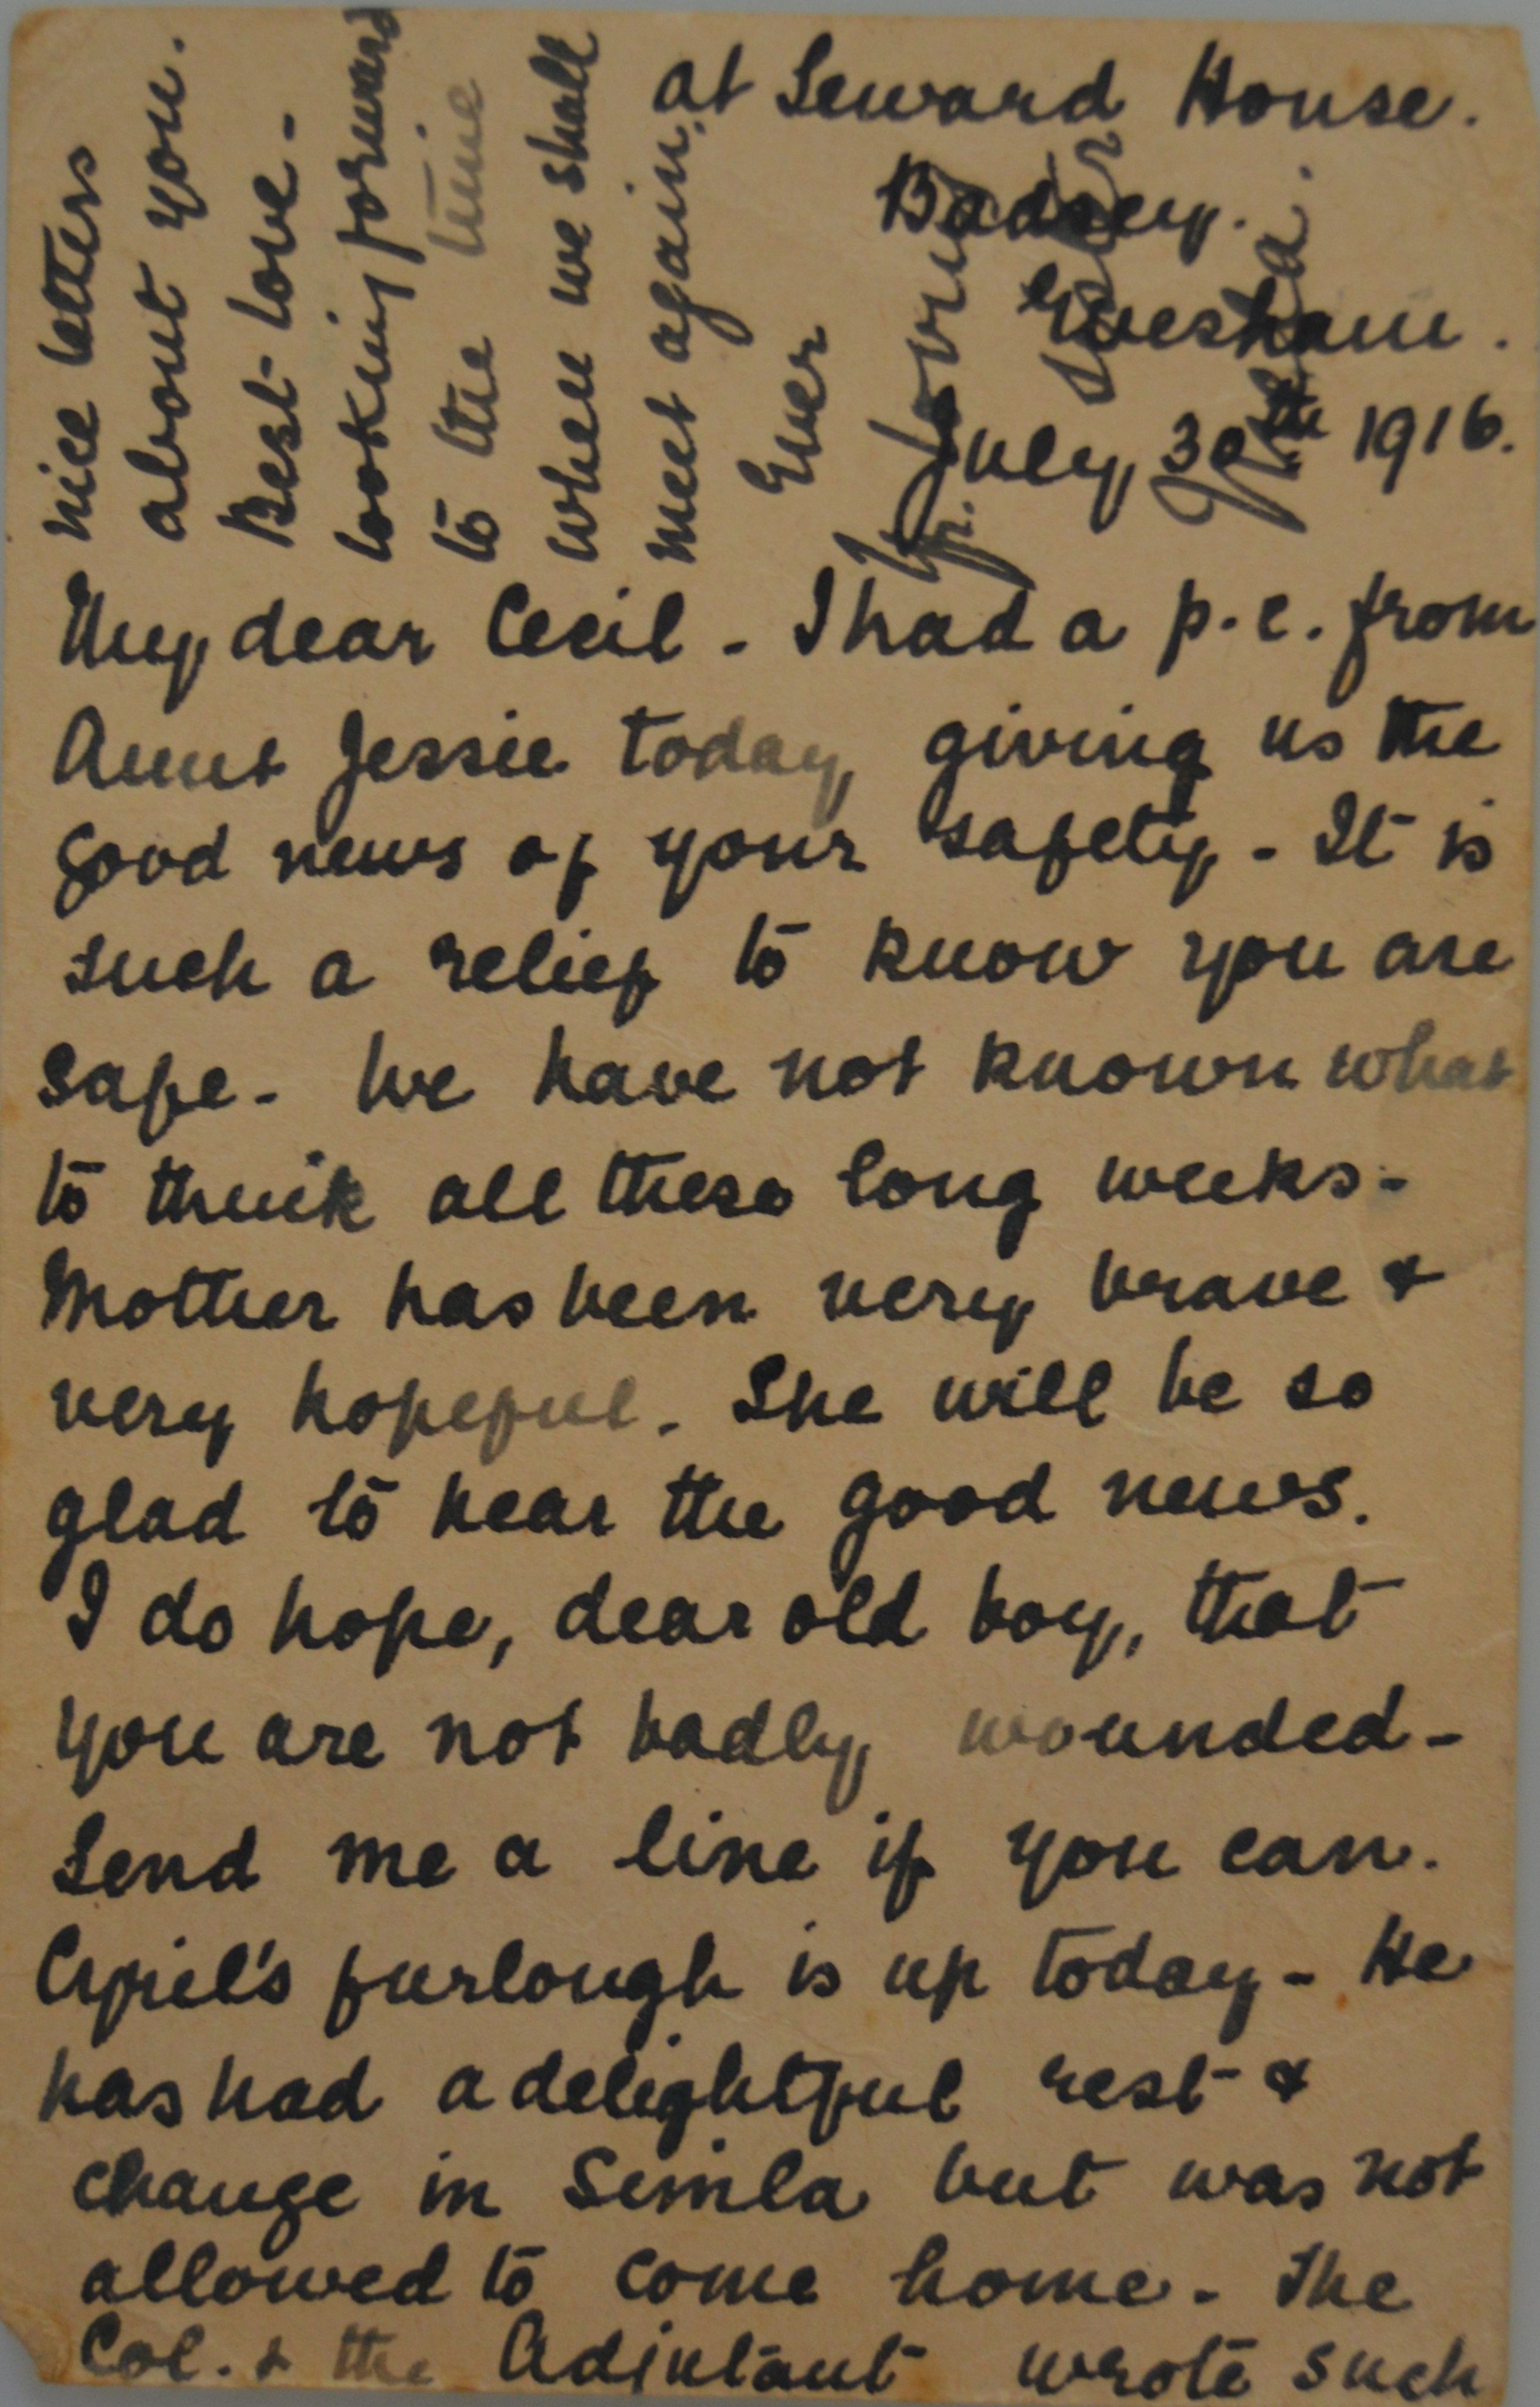 at Seward House.
Badsey.
Evesham.
July 30th 1916.
My dear Cecil - I had a p.c. from
Aunt Jessie today giving us the
good news of your safety - It is
such a relief to know you are
safe - We have not known what
to think all these long weeks -
Mother has been very brave &
very hopeful. She will be so
glad to hear the good news.
I do hope, dear old boy, that
you are not badly wounded -
Send me a line if you can.
Cyril's furlough is up today - He
has had a delightful rest &
change in Simla but was not
allowed to come home - The
Col. & the Adjutant wrote such
nice letters
about you.
Best love -
looking forward
to the time
when we shall
meet again.
Ever
yr. loving
sister